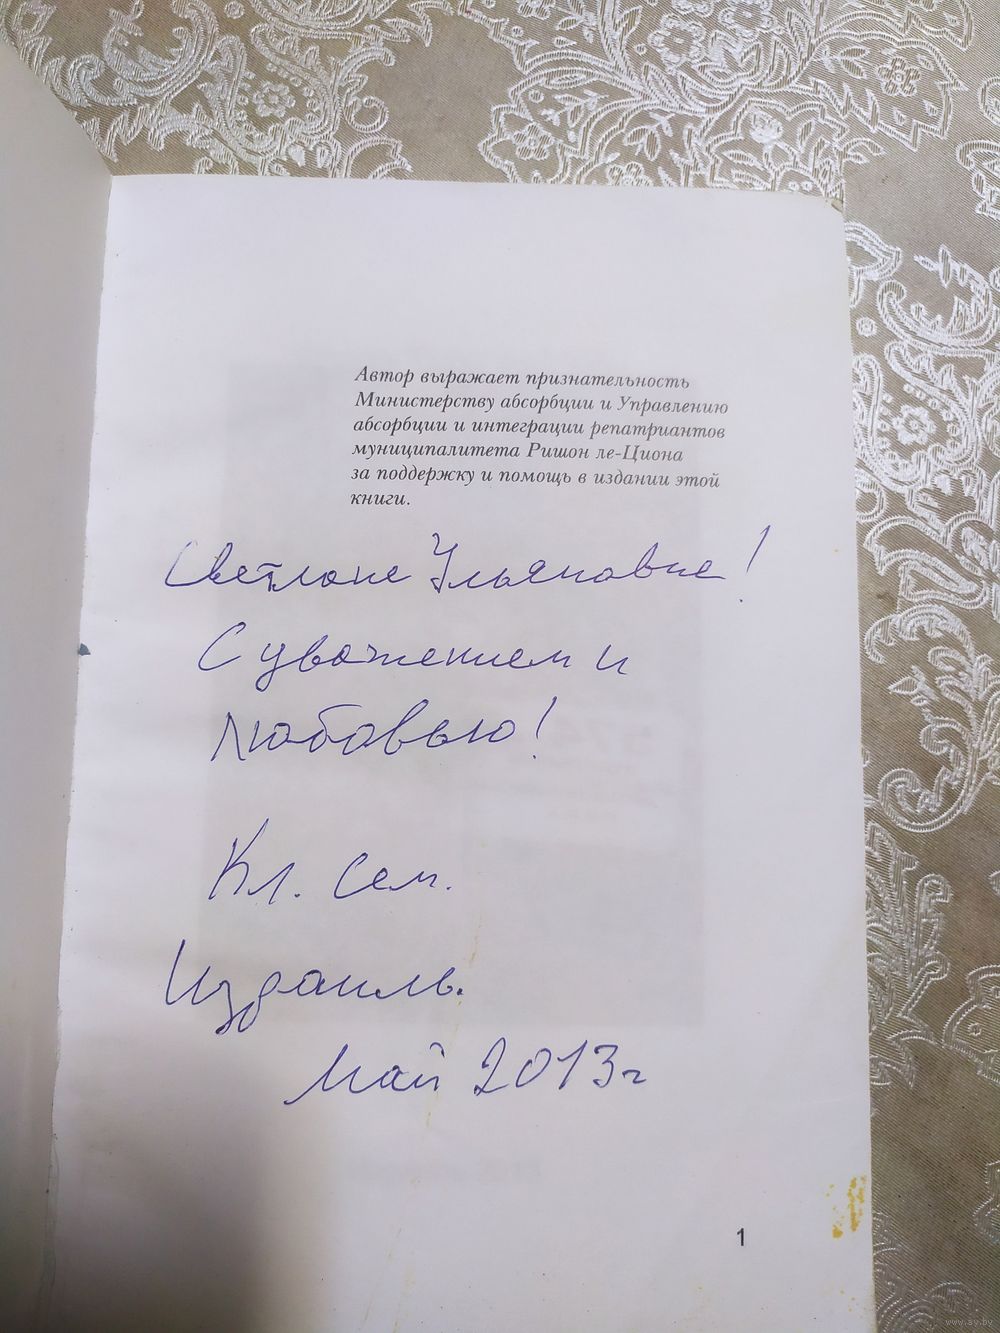 Автор выражает признательность
Министерству абсорбции и Управлению
абсорбции и интеграции репатриантов
муниципалитета Ришон ле-Циона
за поддержку и помощь в издании этой
книги.
Светлане Ульяновне!
С уважением и
любовью!
Кл. Сем.
Израиль.
Май 2013г
1
www.ay.by